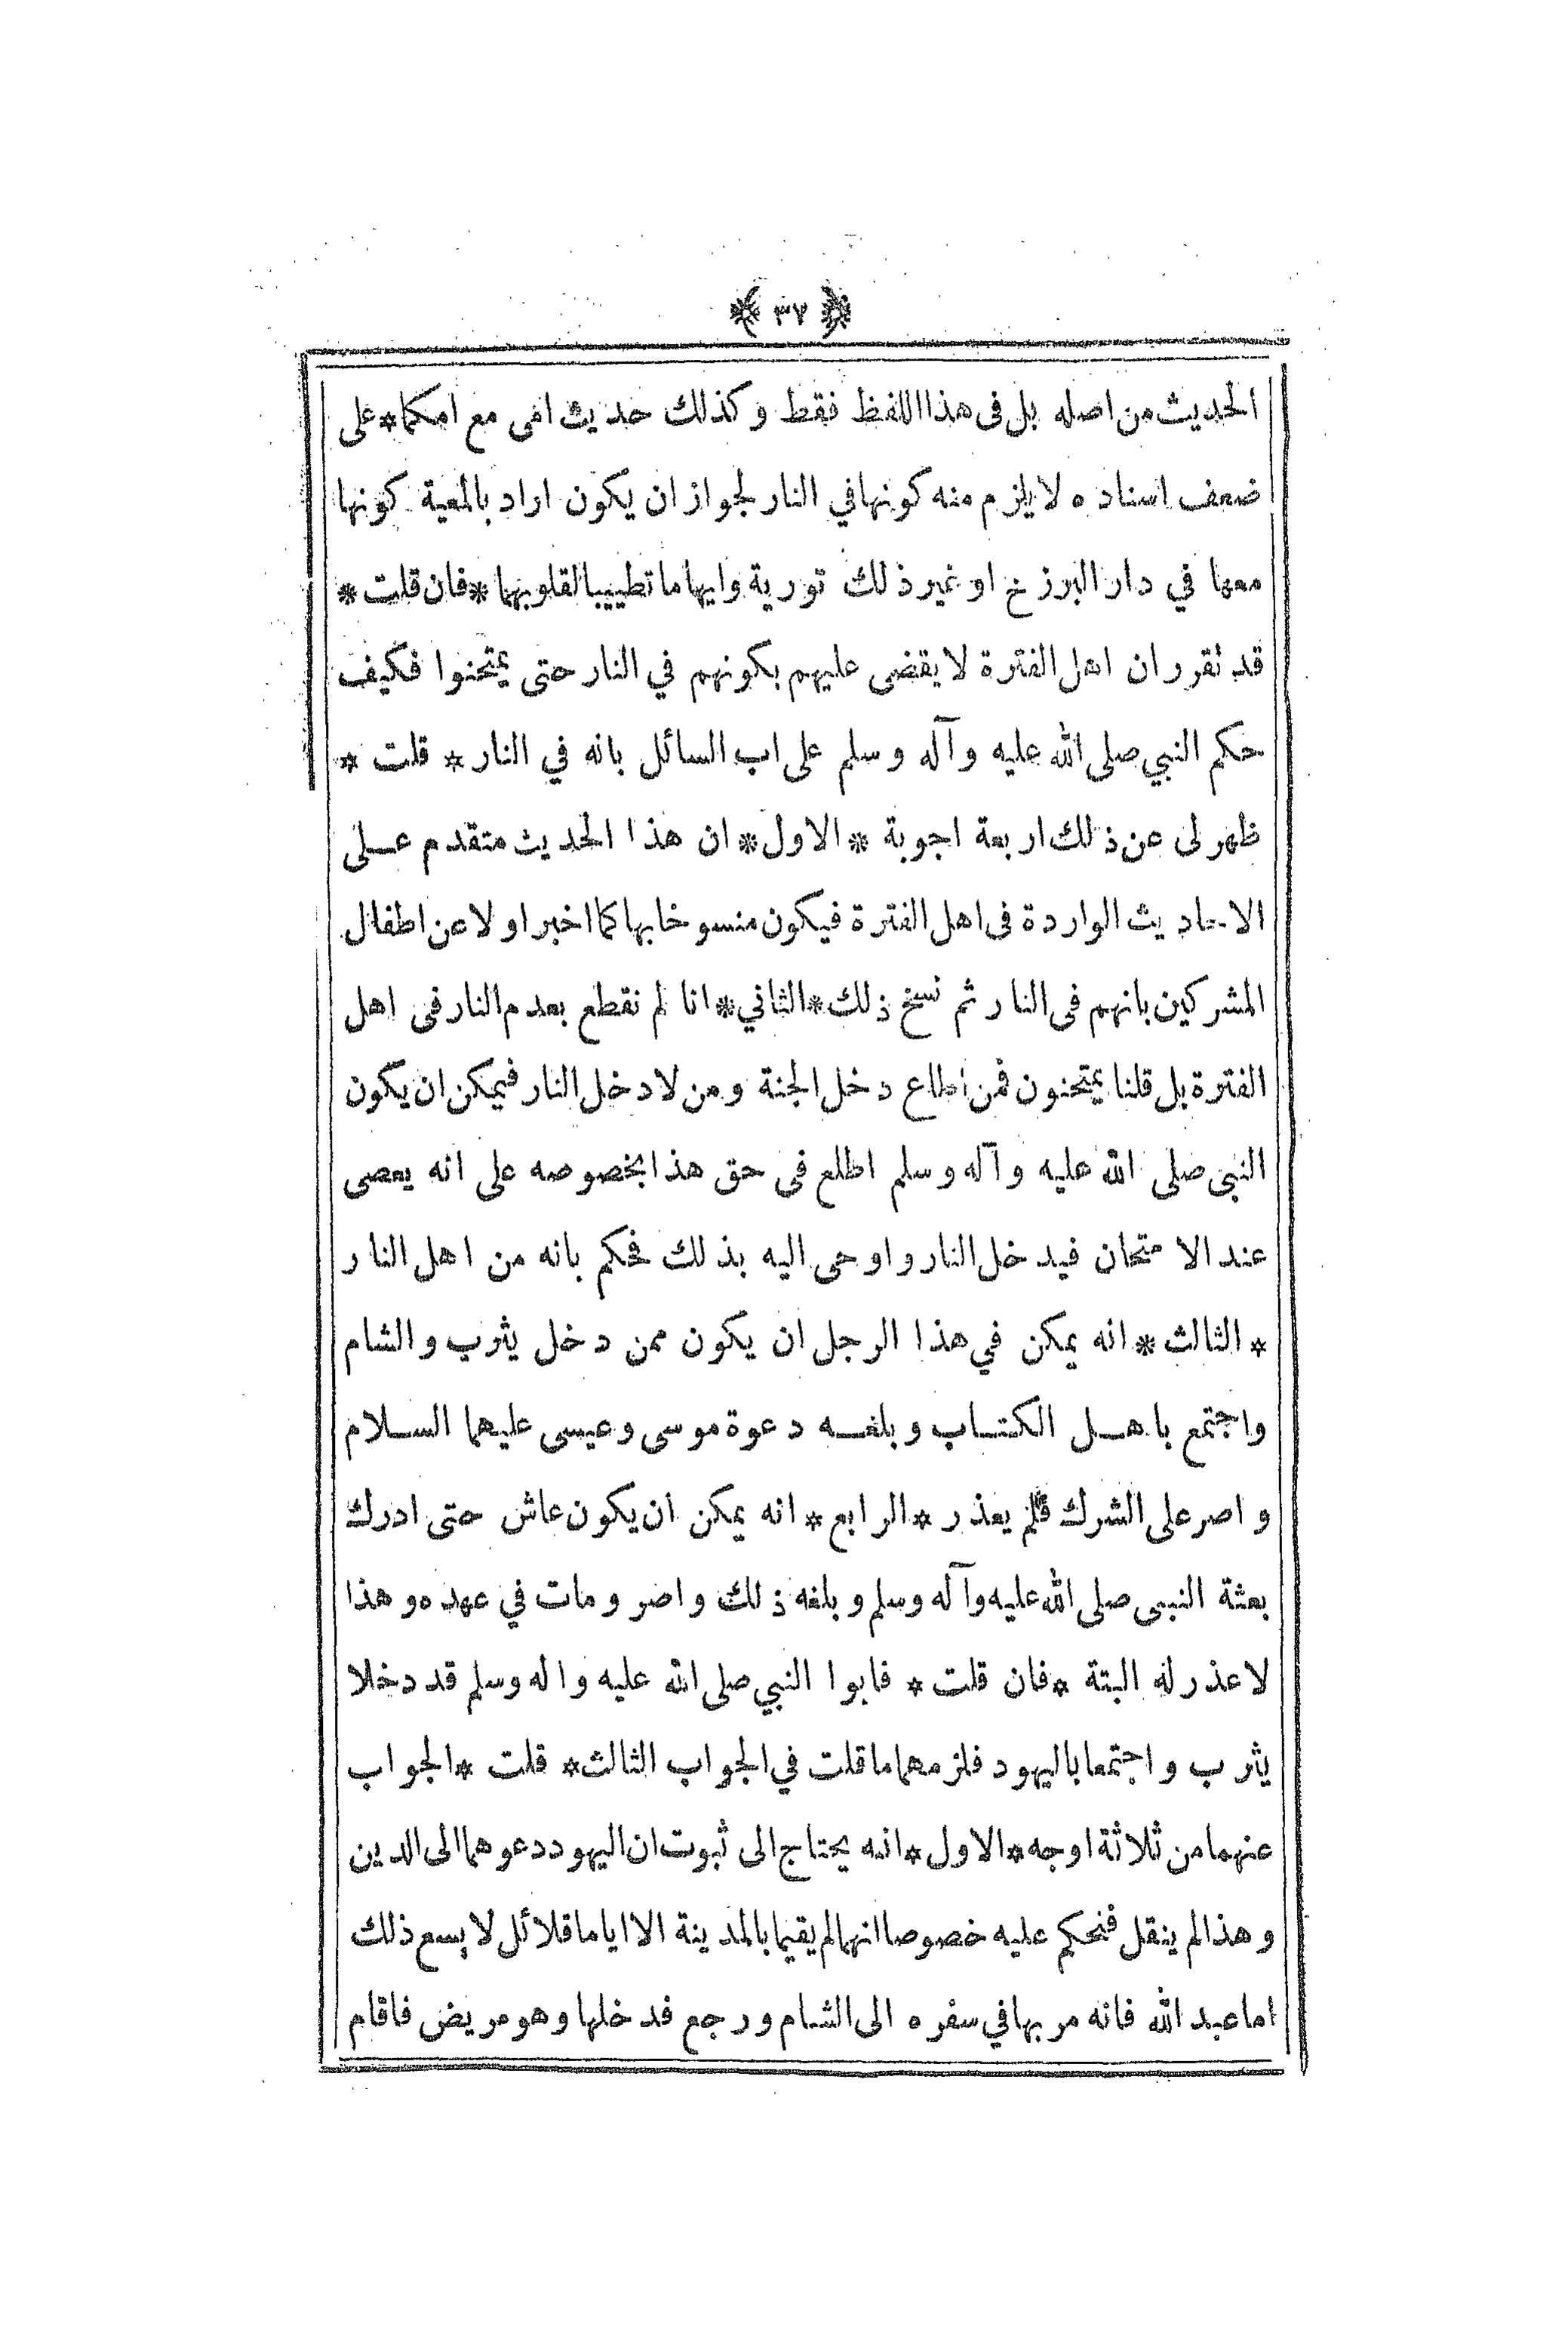 ﴿ ٣٧ ﴾
الحديث من اصله بل فى هذا اللفظ فقط وكذلك حديث امى مع امكما * على
ضعف اسناده لا يلزم منه كونها في النار لجواز ان يكون اراد بالمعية كونها
معها في دار البرزخ او غير ذلك تورية وايهاما تطييبا لقلوبهما * فان قلت *
قد تقرر ان اهل الفترة لا يقضى عليهم بكونهم في النار حتى يمتحنوا فكيف
حكم النبي صلى الله عليه وآله وسلم على اب السائل بانه في النار * قلت *
ظهر لى عن ذلك اربعة اجوبة * الاول * ان هذا الحديث متقدم عــلى
الاحاديث الواردة فى اهل الفترة فيكون منسوخا بها كما اخبر اولا عن اطفال
المشركين بانهم فى النار ثم نسخ ذلك * الثاني * انا لم نقطع بعدم النار فى اهل
الفترة بل قلنا يمتحنون فمن اطاع دخل الجنة ومن لا دخل النار فيمكن ان يكون
النبى صلى الله عليه وآله وسلم اطلع فى حق هذا بخصوصه على انه يعصى
عند الامتحان فيدخل النار واوحى اليه بذلك فحكم بانه من اهل النار
* الثالث * انه يمكن في هذا الرجل ان يكون ممن دخل يثرب والشام
واجتمع باهــل الكتــاب وبلغــه دعوة موسى وعيسى عليهما الســلام
واصر على الشرك فلم يعذر * الرابع * انه يمكن ان يكون عاش حتى ادرك
بعثة النبى صلى الله عليه وآله وسلم وبلغه ذلك واصر ومات في عهده وهذا
لا عذر له البتة * فان قلت * فابوا النبي صلى الله عليه واله وسلم قد دخلا
يثرب واجتمعا باليهود فلزمهما ما قلت في الجواب الثالث * قلت * الجواب
عنهما من ثلاثة اوجه * الاول * انه يحتاج الى ثبوت ان اليهود دعوهما الى الدين
وهذا لم ينقل فنحكم عليه خصوصا انهما لم يقيما بالمدينة الا اياما قلائل لا يسع ذلك
اما عبد الله فانه مر بها في سفره الى الشام ورجع فدخلها وهو مريض فاقام